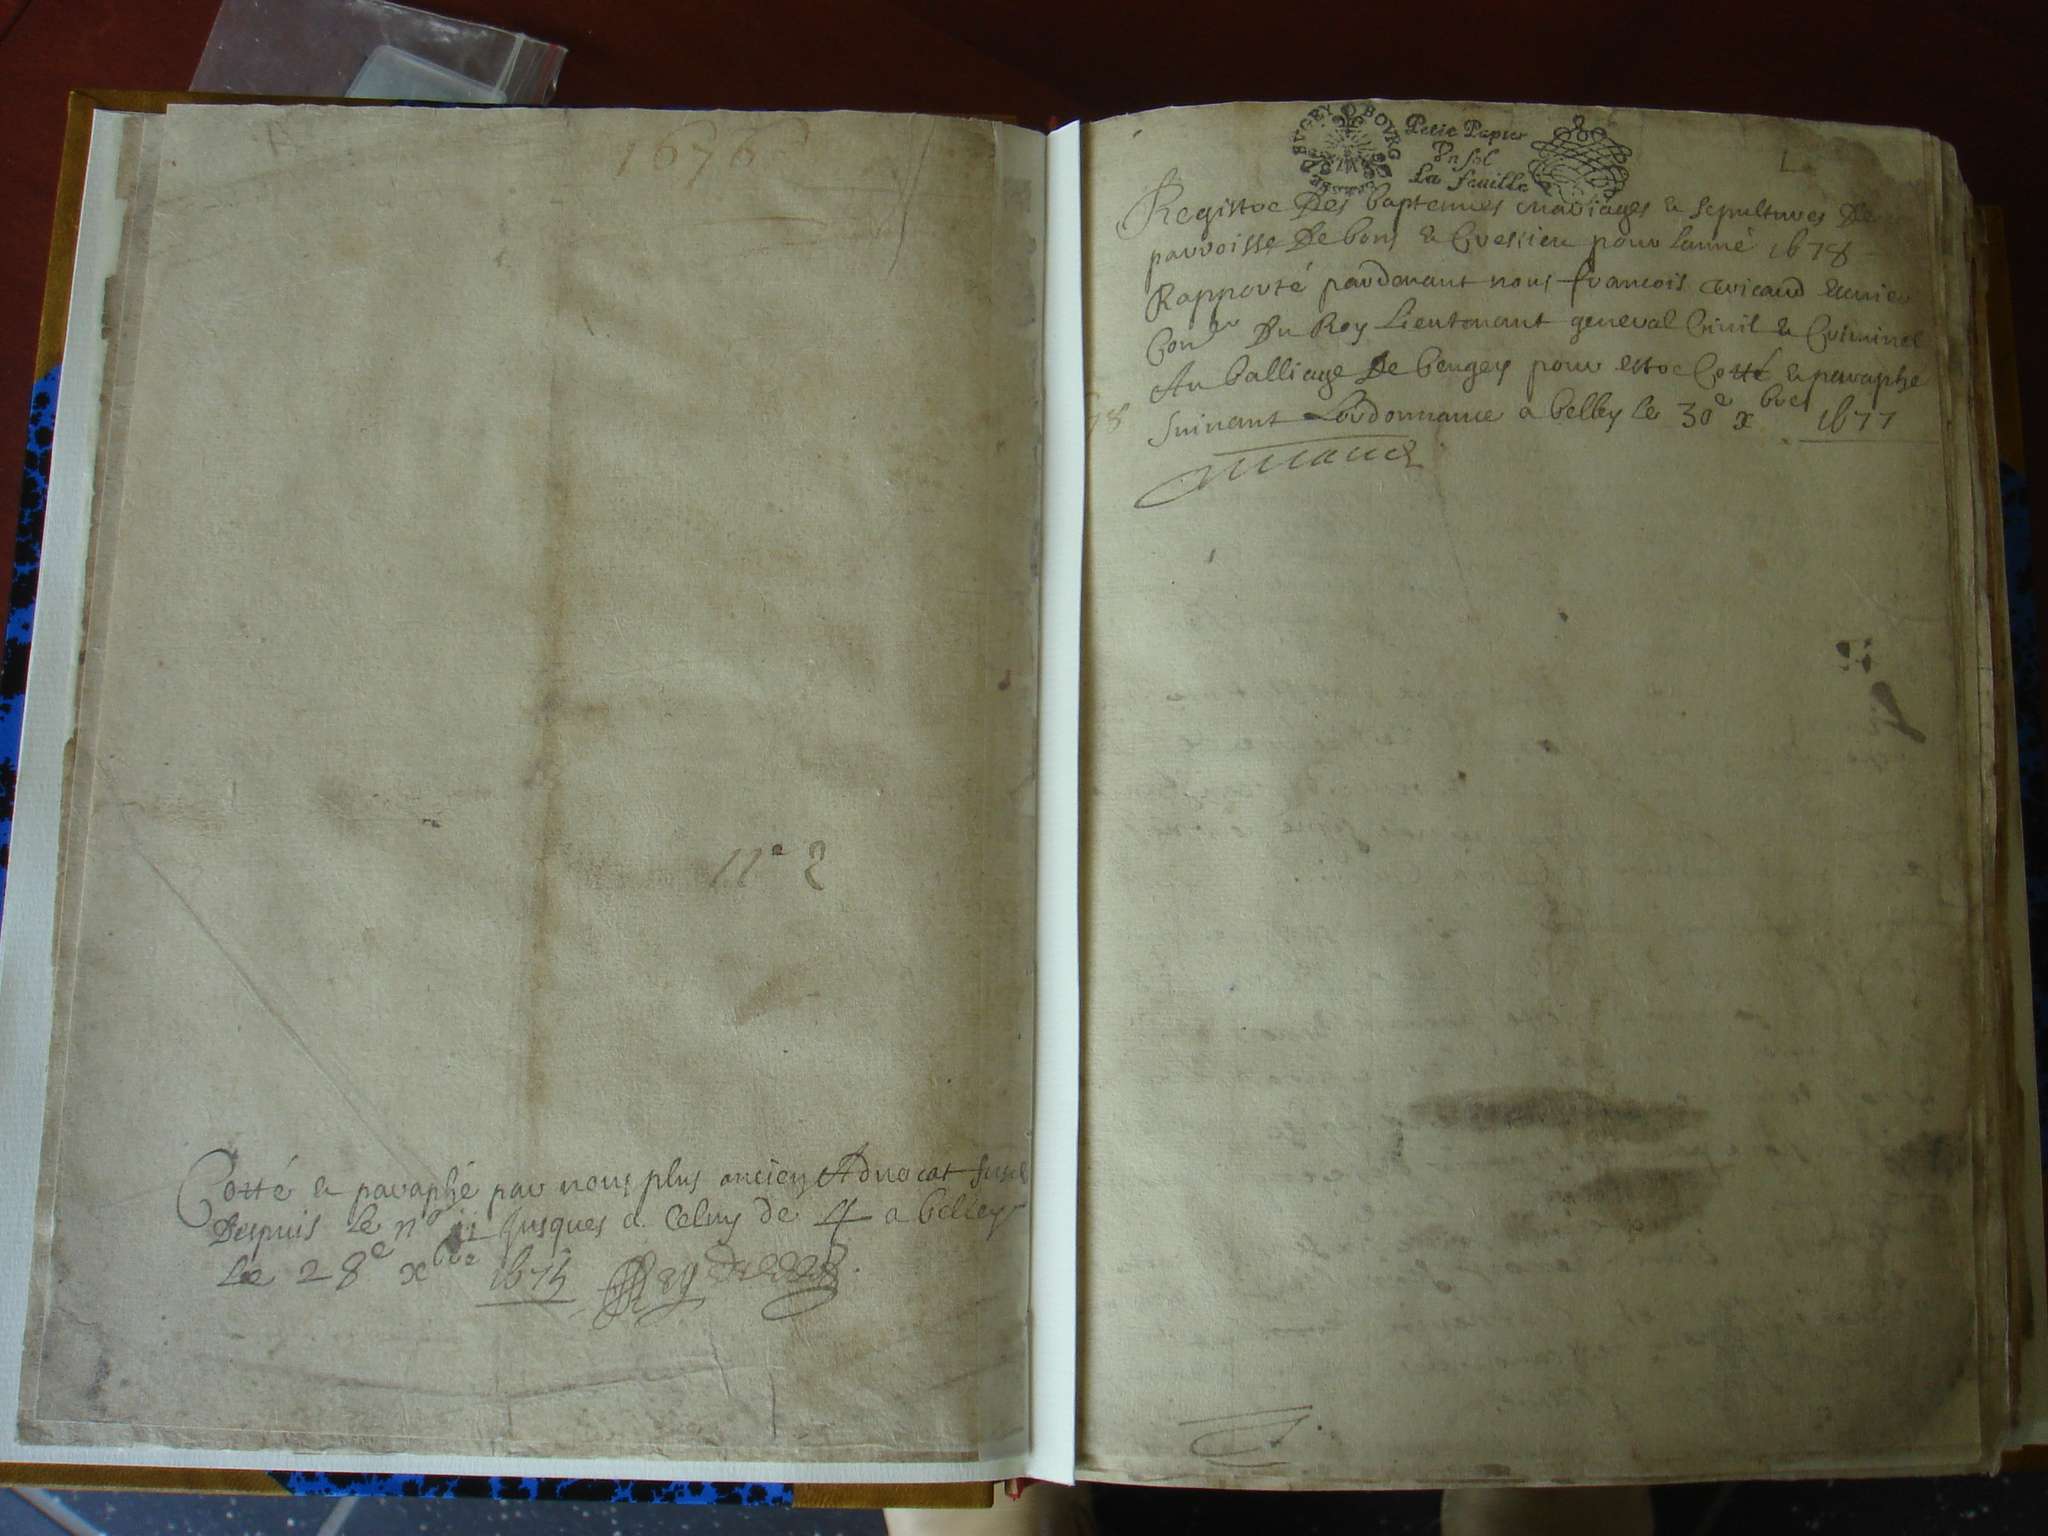 1676
n° 2
Cotté & paraphé par nous plus ancien Advocat
Despuis le n° jusques a celuy de 4 a belley
Le 28e xbre 1675
BVGEY BOVRG
Petit Papier
Vn sol
La feuille
Registre Des baptemmes mariages & sepultures De
parroisse De bons & Cressieu pour lanné 1678
Rapporté pardevant nous francois
Conser Du Roy Lieutenant general Civil & Criminel
Au balliage De beugey pour estre Cotté & paraphe
78
suivant Lordonnance a belley le 30e xbre 1677